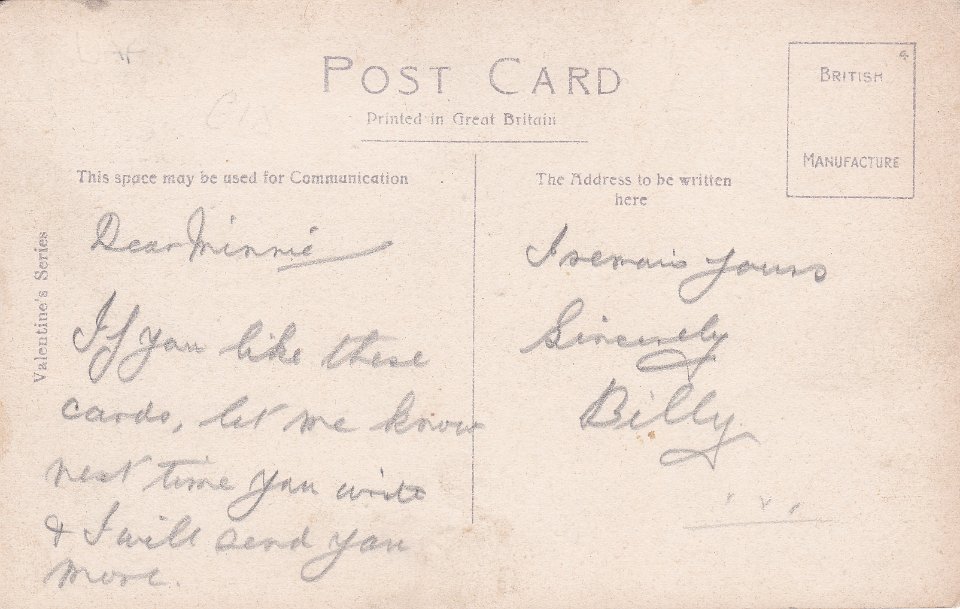 POST CARD
Printed in Great Britain
BRITISH
MANUFACTURE
This space may be used for Communication
The Address to be written
here
Valentine's Series
Dear Minnie
If you like these
cards, let me know
next time you write
& I will send you
more.
I remain yours
Sincerely
Billy